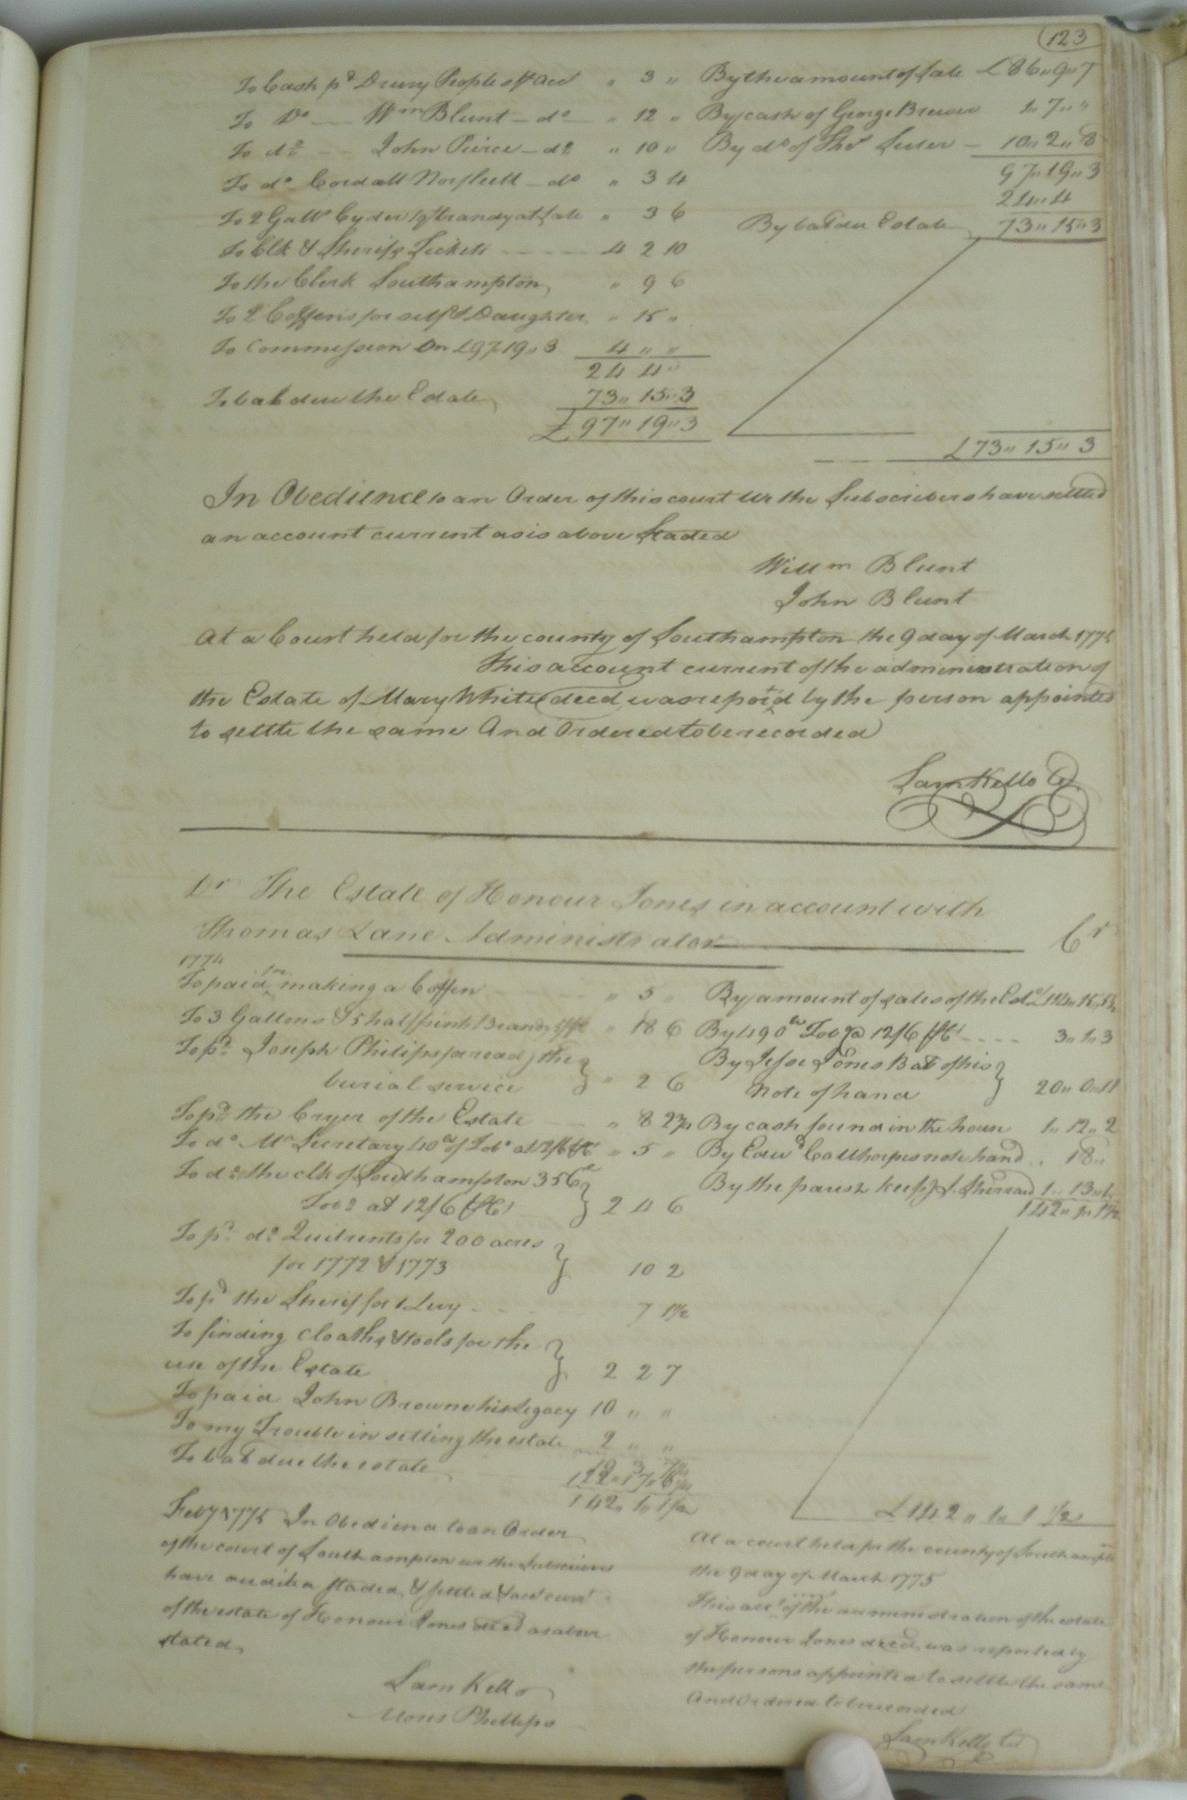 123
To Cash pd Drury People his Acc " 3 " By the amount of Sale £86"9"7
To Do — Wm Blunt — do — " 12 " By cash of George Brewer 1"7""
To do — John Pierce — do " 10 " By do of Thos Luter — 10"2"8
To do Cordall Norfleett — do " 3 4 97"19"3
24"4
To 2 Galls Cyder 1 qt brandy at Sale " 3 6 By bal due Estate 73"15"3
To Clk & Sherifs Tickets 4 2 10
To the Clerk Southampton " 9 6
To 2 Coffens for self & Daughter " 15 "
To Commission on £97"19"3 4 " "
24 4 "
To bal due the Estate 73"15"3
£97"19"3
£73"15"3
In Obedience to an Order of this court We the Subscribers have settled
an account current as is above Stated
Willm Blunt
John Blunt
At a Court held for the county of Southampton the 9 day of March 1775
This account current of the administration of
the Estate of Mary White decd was reported by the person appointed
to settle the same And Ordered to be recorded
Sam Kello Ck
Dr The Estate of Honour Jones in account with
Thomas Lane Administrator Cr
1774
To paid for making a Coffen " 5 " By amount of sales of the Este
To 3 Gallons & 5 half pints Brandy " 18 6 By 490 lb Tobo @ 12/6 3"1"3
To pd Joseph Philips for read, the
burial service " 2 6
By Jesse Jones Bal of his
Note of hand 20"0"11
To pd the Cryer of the Estate " 8 2¾ By cash found in the house 1"12"2
To do Mr Secretary 40 lb of Tobo at 12/6 " 5 " By Edwd Calthorpes note hand " 18"
To do the clk of Southampton 356 lb
Tobo at 12/6 2 4 6
By the parish keepg J. Sherrard 1"13"
142"1"1½
To pd do Quitrents for 200 acres
for 1772 & 1773 10 2
To pd the Sherif for 1 Levy 7 1½
To finding cloaths & tools for the
use of the Estate 2 2 7
To paid John Browne his Legacy 10 " "
To my Trouble in setling the estate 2 " "
To bal due the estate
142"1"1½
£142"1"1½
Feby 1775 In Obedience to an Order
of the court of Southampton we the Subscribers
have audited stated & settled the acct curt
of the estate of Honour Jones decd as above
stated
Sam Kello
Moses Phillips
At a court held for the county of Southampton
the 9 day of March 1775
This acct of the administration of the estate
of Honour Jones decd was reported by
the persons appointed to settle the same
And Ordered to be recorded
Sam Kello Ck